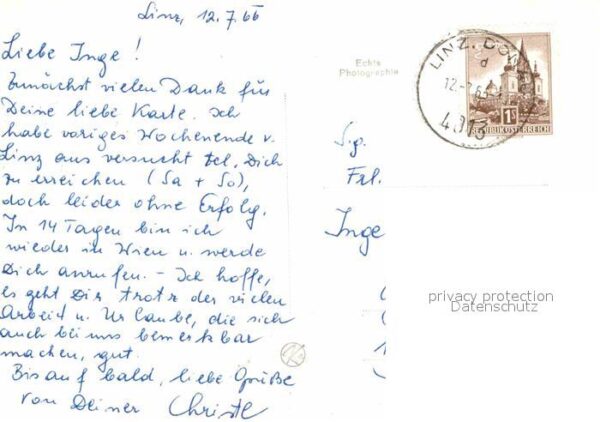 Linz, 12.7.66
Liebe Inge!
Zunächst vielen Dank für
Deine liebe Karte. Ich
habe voriges Wochenende v.
Linz aus versucht tel. Dich
zu erreichen (Sa + So),
doch leider ohne Erfolg.
In 14 Tagen bin ich
wieder in Wien u. werde
Dich anrufen. - Ich hoffe,
es geht Dir trotz der vielen
Arbeit u. Urlaube, die sich
auch bei uns bemerkbar
machen, gut.
Bis auf bald, liebe Grüße
von Deiner Christl
Echte
Photographie
LINZ, DO
d
12.-7.66
4013
1S
REPUBLIK ÖSTERREICH
Frl.
Inge
privacy protection
Datenschutz